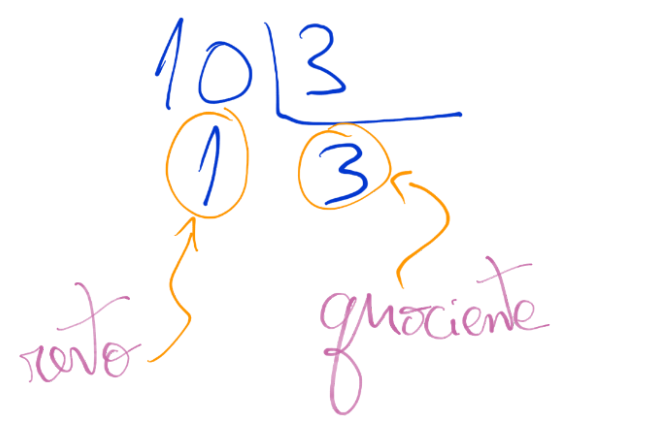 10 3
1 3
resto quociente